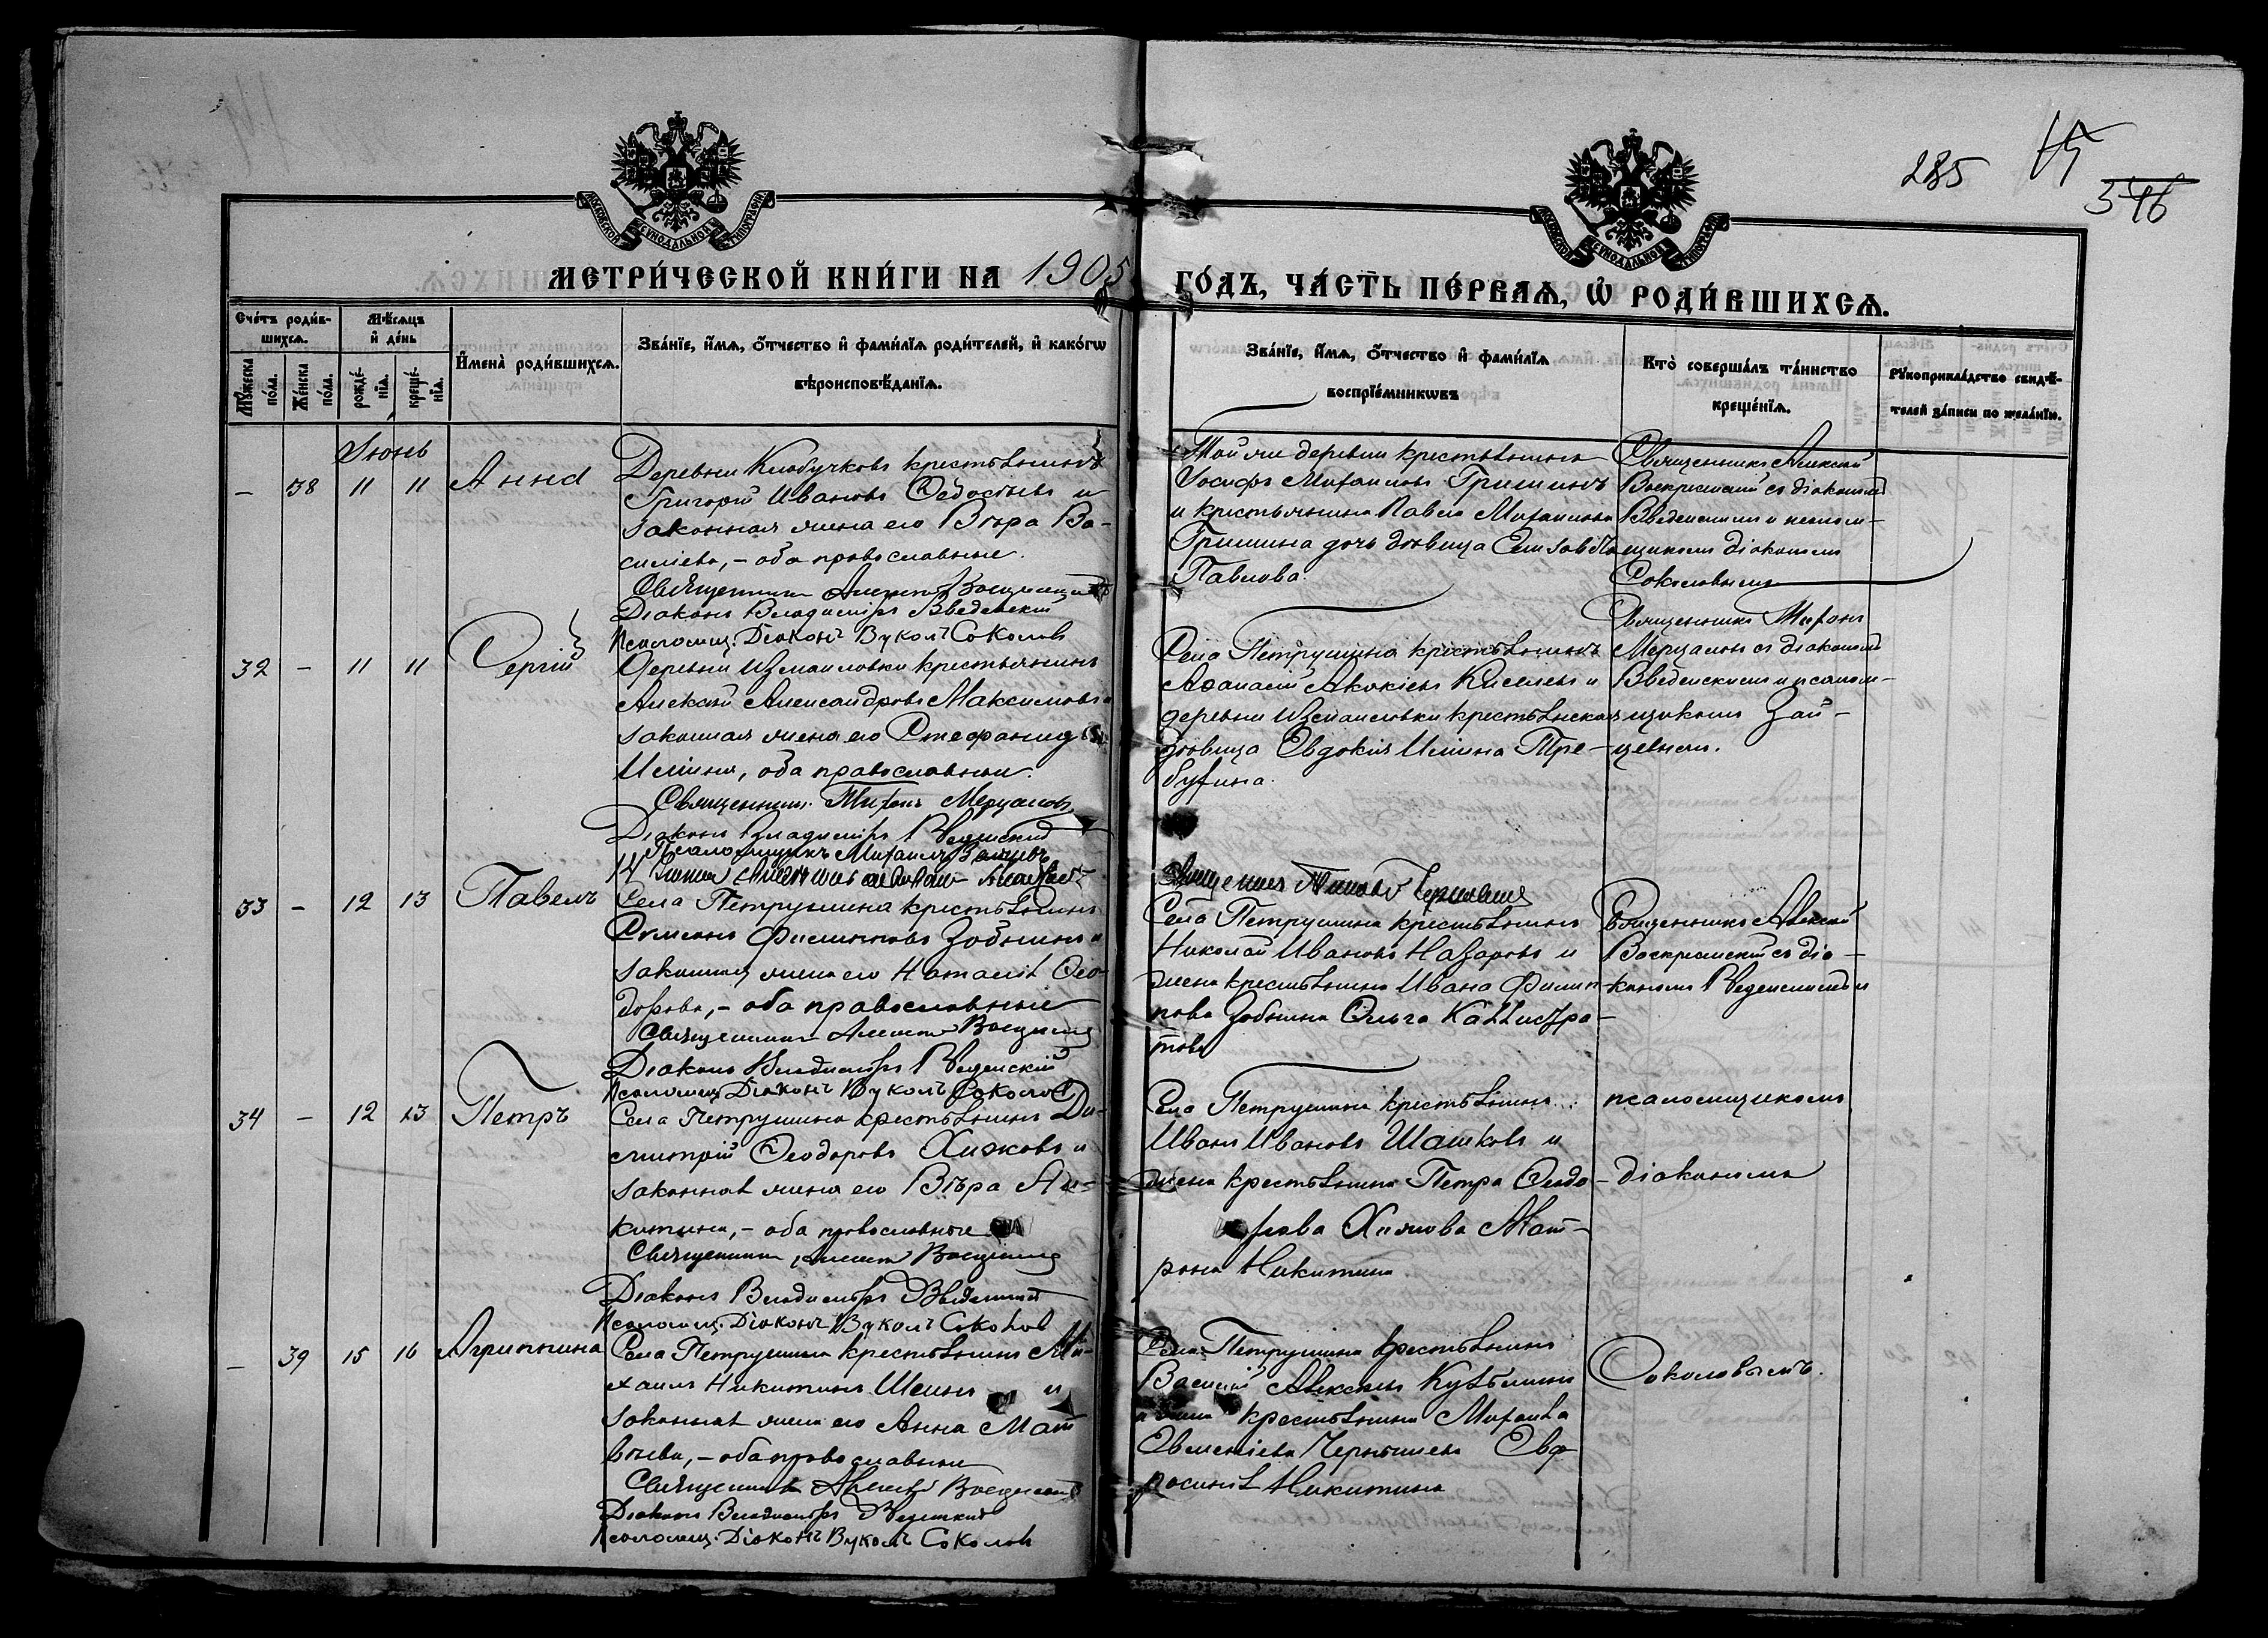 285
546
МОСКОВСКОЙ СѴНОДАЛЬНОЙ ТИПОГРАФІИ
МОСКОВСКОЙ СѴНОДАЛЬНОЙ ТИПОГРАФІИ
МЕТРИ́ЧЕСКОЙ КНИ́ГИ НА 1905
ГО́ДЪ, ЧА́СТЬ ПЕ́РВАѦ, Ѡ҆ РОДИ́ВШИХСѦ.
Сче́тъ роди́в-
шихсѧ.
Мꙋ́жеска по́ла.
Же́нска по́ла.
Мѣ́сѧцъ
и҆ де́нь
рожде́-
нїѧ.
креще́-
нїѧ.
И҆мена̀ роди́вшихсѧ.
Зва́нїе, и҆́мѧ, ѻ҆́тчество и҆ фами́лїѧ роди́телей, и҆ како́гѡ
вѣроисповѣ́данїѧ.
Зва́нїе, и҆́мѧ, ѻ҆́тчество и҆ фами́лїѧ
воспрїе́мникѡвъ
Кто̀ соверша́лъ та́инство
креще́нїѧ.
Рꙋкоприкла́дство свидѣ́-
телей за́писи по жела́нїю.
Іюнь
– 38 11 11 Анна
Деревни Клобучковъ крестьянинъ
Григорій Ивановъ Ѳедосѣевъ и
законная жена его Вѣра Ва-
сильева, – оба православные.
Священникъ Алексій Воскресенскій
Діаконъ Владиміръ Введенскій
Псаломщ. Діаконъ Вуколъ Соколовъ
Той же деревни крестьянинъ
Іосифъ Михаиловъ Гришинъ
и крестьянина Павла Михаилова
Гришина дочь дѣвица Елизавета
Павлова.
Священникъ Алексій
Воскресенскій съ діакономъ
Введенскимъ и псалом-
щикомъ діакономъ
Соколовымъ
32 – 11 11 Сергій
Деревни Измаиловки крестьянинъ
Алексій Александровъ Максимовъ и
законная жена его Стефанида
Ильина, оба православные.
Священникъ Тихонъ Мерцаловъ
Діаконъ Владиміръ Введенскій
Псаломщикъ Михаилъ Зайцевъ
Села Петрушина крестьянинъ
Аѳанасій Акакіевъ Киселевъ и
деревни Измаиловки крестьянская
дѣвица Евдокія Ильина Тре-
бухина.
Священникъ Тихонъ
Мерцаловъ съ діакономъ
Введенскимъ и псалом-
щикомъ Зай-
цевымъ.
14 Іюня
33 – 12 13 Павелъ
Села Петрушина крестьянинъ
Симеонъ Филипповъ Зобнинъ и
законная жена его Наталія Ѳео-
дорова, – оба православные
Священникъ Алексій Воскресенскій
Діаконъ Владиміръ Введенскій
Псаломщ. Діаконъ Вуколъ Соколовъ
Священникъ
Села Петрушина крестьянинъ
Николай Ивановъ Назаровъ и
жена крестьянина Ивана Филип-
пова Зобнина Ольга Каллистра-
това
Священникъ Алексій
Воскресенскій съ діа-
кономъ Введенскимъ и
34 – 12 13 Петръ
Села Петрушина крестьянинъ Ди-
митрій Ѳеодоровъ Хижковъ и
законная жена его Вѣра Ни-
китина, – оба православные
Священникъ Алексій Воскресенскій
Діаконъ Владиміръ Введенскій
Псаломщ. Діаконъ Вуколъ Соколовъ
Села Петрушина крестьянинъ
Иванъ Ивановъ Шашковъ и
жена крестьянина Петра Ѳеодо-
рова Хижкова Мат-
рона Никитина
псаломщикомъ
діакономъ
– 39 15 16 Агриппина
Села Петрушина крестьянинъ Ми-
хаилъ Никитинъ Шеинъ и
законная жена его Анна Мат-
вѣева, – оба православные
Священникъ Алексій Воскресенскій
Діаконъ Владиміръ Введенскій
Псаломщ. Діаконъ Вуколъ Соколовъ
Села Петрушина крестьянинъ
Василій Алексѣевъ Кузьминъ
и жена крестьянина Михаила
Евменіева Чернышева Евф-
росинія Никитина
Соколовымъ.